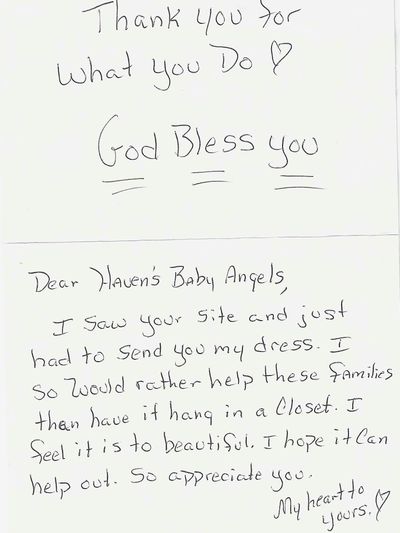 Thank you for
What you Do ♡
God Bless you
Dear Haven's Baby Angels,
I saw your site and just
had to send you my dress. I
so would rather help these families
than have it hang in a closet. I
feel it is to beautiful. I hope it can
help out. So appreciate you.
My heart to
yours. ♡